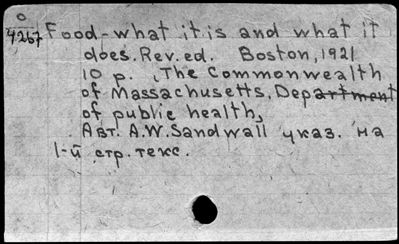 O
4267 Food-what it is and what it
does. Rev. ed. Boston, 1921
10 p. , The Commonwealth
of Massachusetts, Department
of public health,
Авт. A.W. Sandwall указ. на
1-й стр. текс.